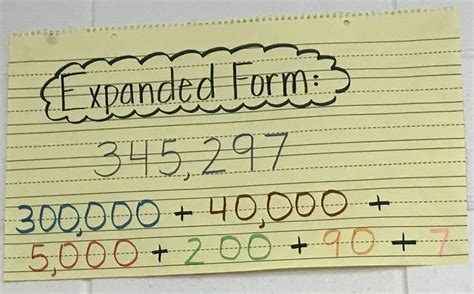 Expanded Form:
345,297
300,000 + 40,000 +
5,000 + 200 + 90 + 7